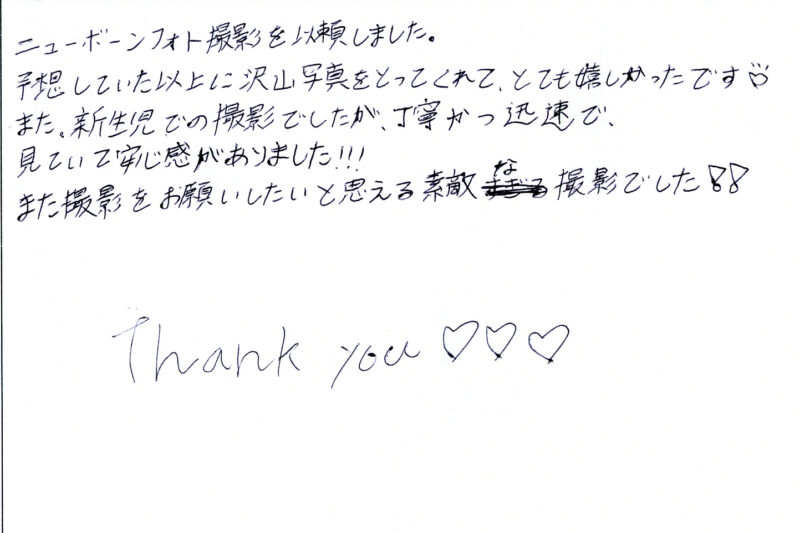 ニューボーンフォト撮影を以頼しました。
予想していた以上に沢山写真をとってくれて、とても嬉しかったです
また、新生児での撮影でしたが、丁寧かつ迅速で、
見ていて安心感がありました!!!
また撮影をお願いしたいと思える素敵な撮影でした!!
Thank you ♡♡♡